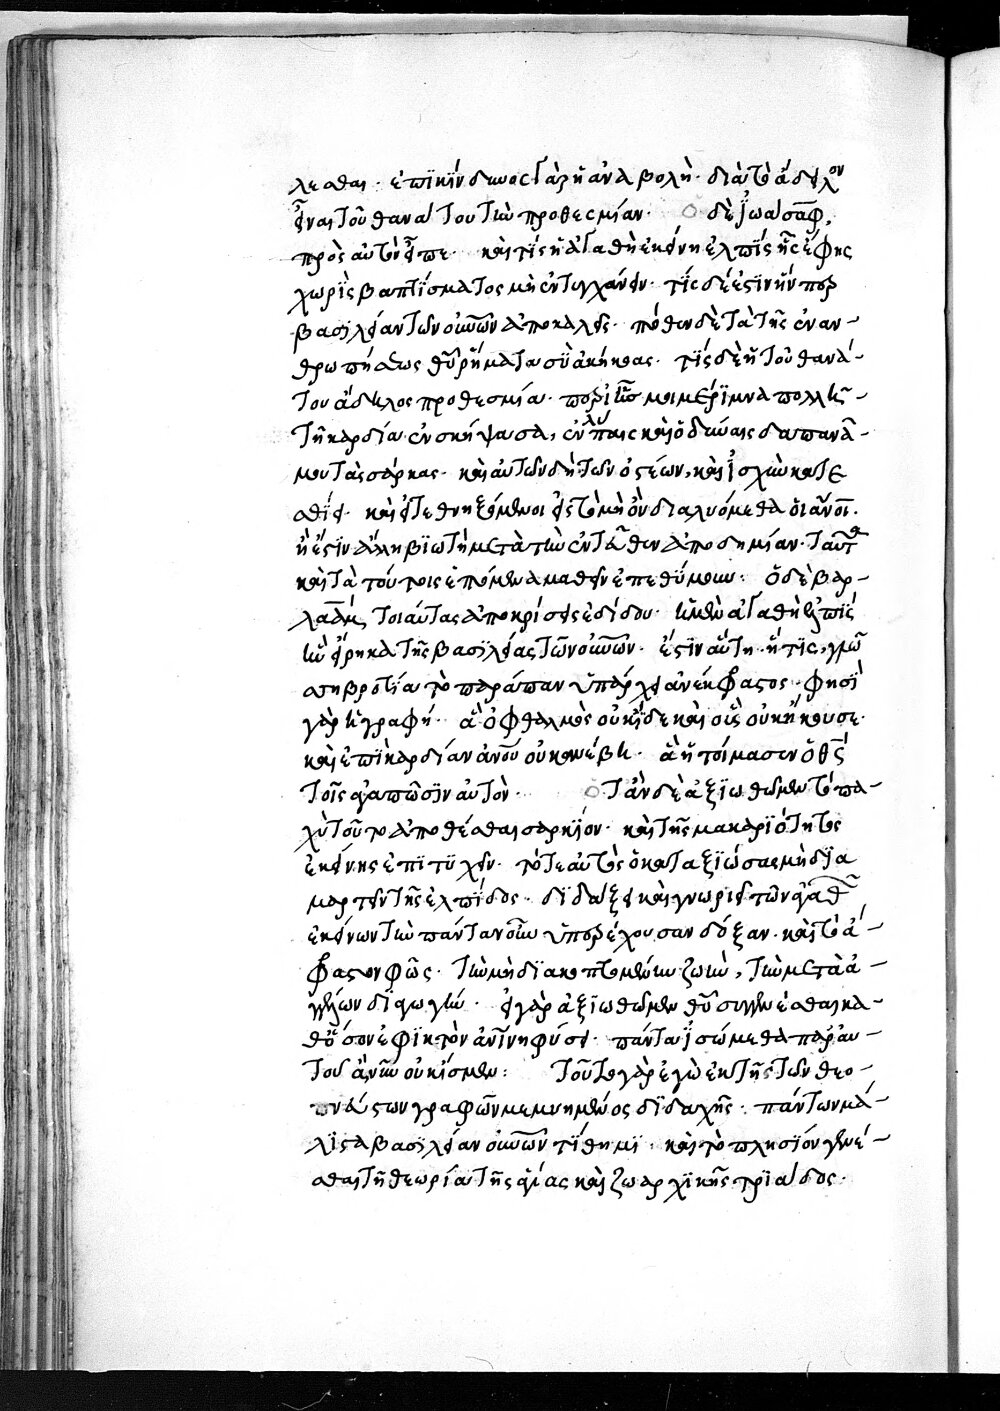 λεσθαι· ἐπϊκίνδυνος γὰρ ἡ ἀναβολὴ· διὰ τὸ ἄδηλον
εἶναι τοῦ θανάτου τὴν προθεσμίαν· ὁ δὲ ἰωάσαφ,
πρὸς αὐτὸν εἶπε· καὶ τίς ἡ ἀγαθὴ ἐκείνη ἐλπὶς ἧς ἔφης
χωρὶς βαπτίσματος μὴ ἐντυγχάνειν· τίς δέ ἐστιν ἥνπερ
βασιλείαν τῶν οὐνῶν ἀποκαλεῖς· πόθεν δὲ τὰ τῆς ἐναν-
θρωπήσεως θυ ῥήματα σὺ ἀκήκοας· τίς δὲ ἡ τοῦ θανά-
του ἄδηλος προθεσμία· περὶ ἧς μοι μέριμνα πολλὴ
τῇ καρδία ἐνσκήψασα, ἐν λύπαις καὶ ὀδύναις δαπανᾶ
μου τὰς σάρκας· καὶ αὐτῶν δὴ τῶν ὀστέων, καὶ ἰσχὺν κατε
σθίει· καὶ εἰ τεθνηξόμενοι εἰς τὸ μὴ ὂν διαλυόμεθα οἱ ἄνοι·
ἢ ἔστιν ἄλλη βιωτὴ μετὰ τὴν ἐνταῦθεν ἀποδημίαν· ταῦτα
καὶ τὰ τούτοις ἑπόμενα μαθεῖν ἐπεθύμουν: ὁ δὲ βαρ-
λαὰμ, τοιαύτας ἀποκρίσεις ἐδίδου· ἡ μὲν ἀγαθὴ ἐλπὶς
ἣν εἴρηκα τῆς βασιλείας τῶν οὐνῶν· ἔστιν αὕτη ἥτις, γλώσ
ση βροτεία τὸ παράπαν ὑπάρχει ἀνέκφραστος· φησὶ
γὰρ ἡ γραφή· ἃ ὀφθαλμὸς οὐκ εἶδε καὶ οὖς οὐκ ἤκουσε·
καὶ ἐπὶ καρδίαν ἀνου οὐκ ἀνέβη· ἃ ἡτοίμασεν ὁ θς
τοῖς ἀγαπῶσιν αὐτὸν· ὅταν δὲ ἀξιωθῶμεν τὸ πα-
χὺ τοῦτο ἀποθέσθαι σαρκίον· καὶ τῆς μακαριότητος
ἐκείνης ἐπιτυχεῖν· τότε αὐτὸς ὁ καταξιώσας μὴ δια
μαρτεῖν τῆς ἐλπίδος· διδάξει καὶ γνωριεῖ τῶν ἀγαθῶν
ἐκείνων τὴν πάντα νοῦν ὑπερέχουσαν δόξαν· καὶ τὸ ἄ-
φραστον φῶς· τὴν μὴ διακοπτομένην ζωὴν, τὴν μετὰ ἀ-
γγέλων διαγωγὴν· εἰ γὰρ ἀξιωθῶμεν θῷ συγγενέσθαι κα-
θόσον ἐφικτὸν ἀνίνη φύσει· πάντα εἰσώμεθα παρ' αὐ-
τοῦ ἃ νῦν οὐκ ἴσμεν: τοῦτο γὰρ ἐγὼ ἐκ τῆς τῶν θεο-
πνεύστων γραφῶν μεμυημένος διδαχῆς· πάντων μά-
λιστα βασιλείαν οὐνῶν τίθημι· καὶ τὸ πλησίον γενέ-
σθαι τῇ θεωρία τῆς ἁγίας καὶ ζωαρχικῆς τριάδος·